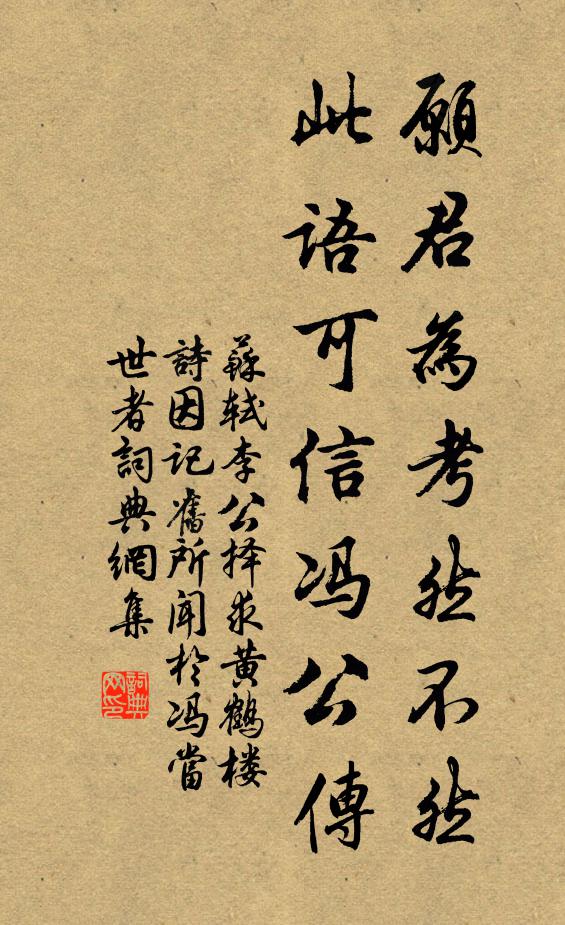 願君為考然不然
此語可信馮公傳
蘇軾李公择求黄鶴楼
詩因記舊所聞於馮當
世者詞典網集
詞典
网印